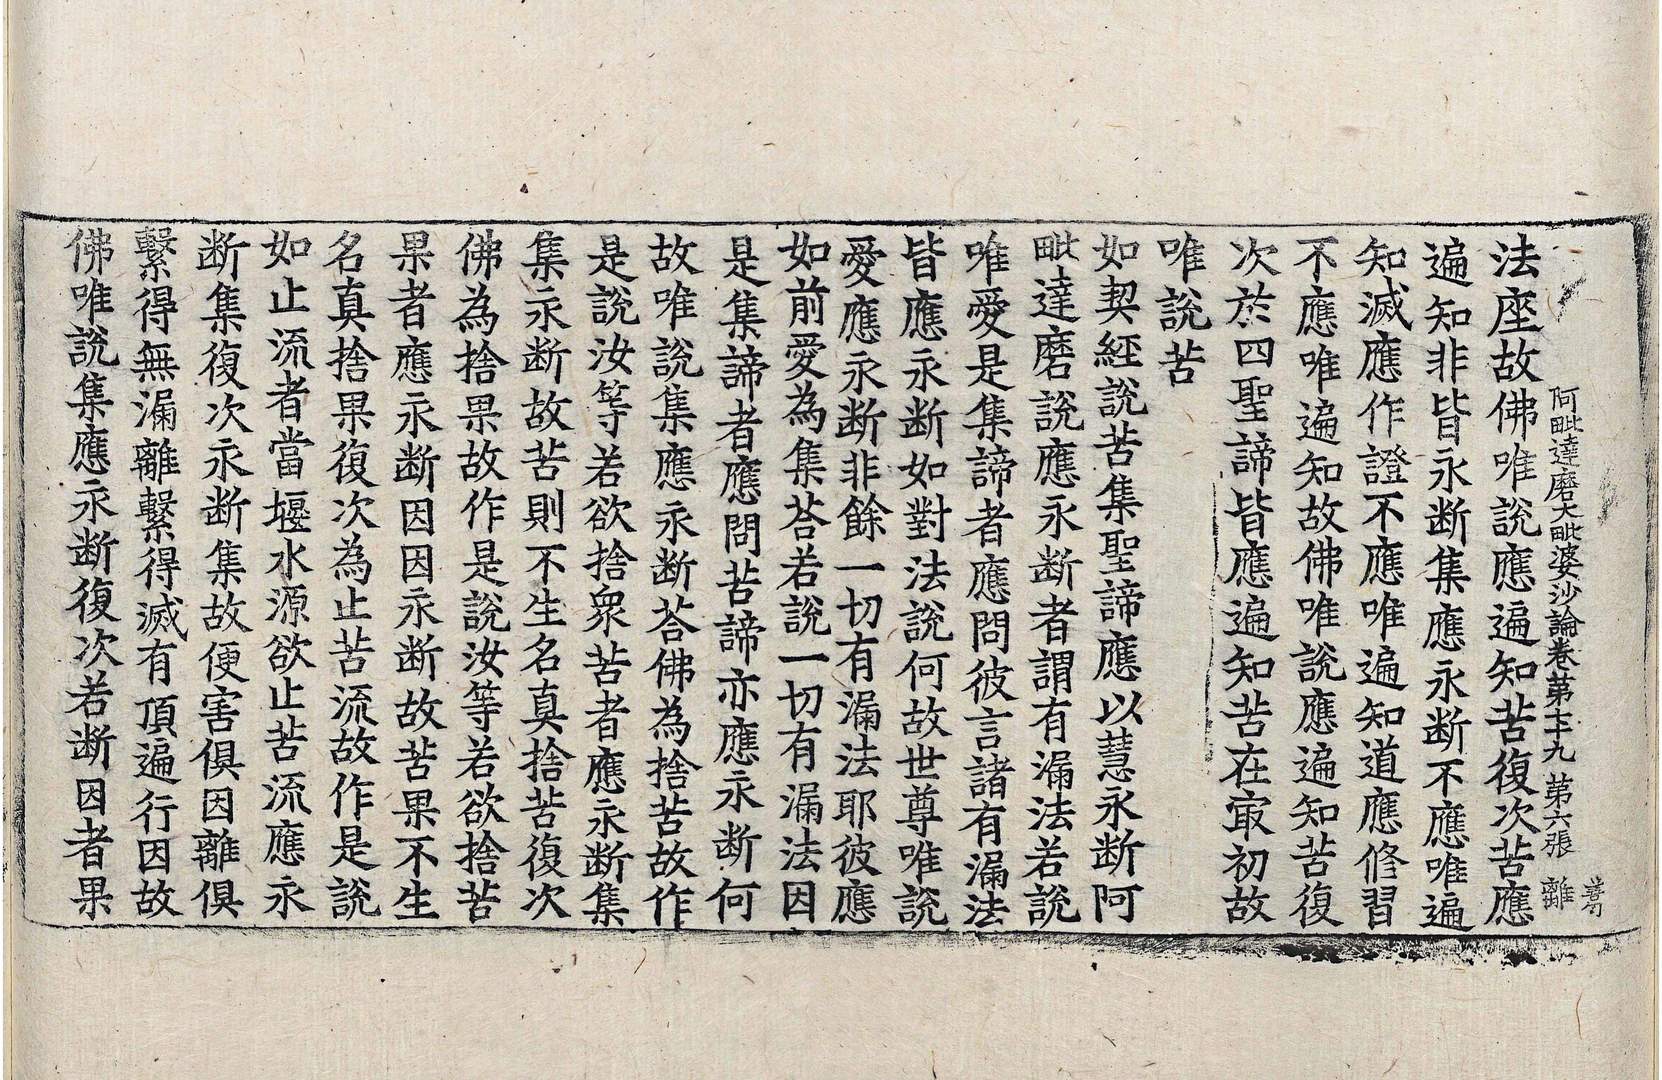 阿毗達磨大毗婆沙論卷第七十九 第六張 離
法座故佛唯說應遍知苦復次苦應
遍知非皆永断集應永断不應唯遍
知滅應作證不應唯遍知道應修習
不應唯遍知故佛唯說應遍知苦復
次於四聖諦皆應遍知苦在㝡初故
唯說苦
如契經說苦集聖諦應以慧永断阿
毗達磨說應永断者謂有漏法若說
唯愛是集諦者應問彼言諸有漏法
皆應永断如對法說何故世尊唯說
愛應永断非餘一切有漏法耶彼應
如前愛為集荅若說一切有漏法因
是集諦者應問苦諦亦應永断何
故唯說集應永断荅佛為捨苦故作
是說汝等若欲捨衆苦者應永断集
集永断故苦則不生名真捨苦復次
佛為捨果故作是說汝等若欲捨苦
果者應永断因因永断故苦果不生
名真捨果復次為止苦流故作是說
如止流者當堰水源欲止苦流應永
断集復次永断集故便害俱因離俱
繫得無漏離繫得滅有頂遍行因故
佛唯說集應永断復次若断因者果